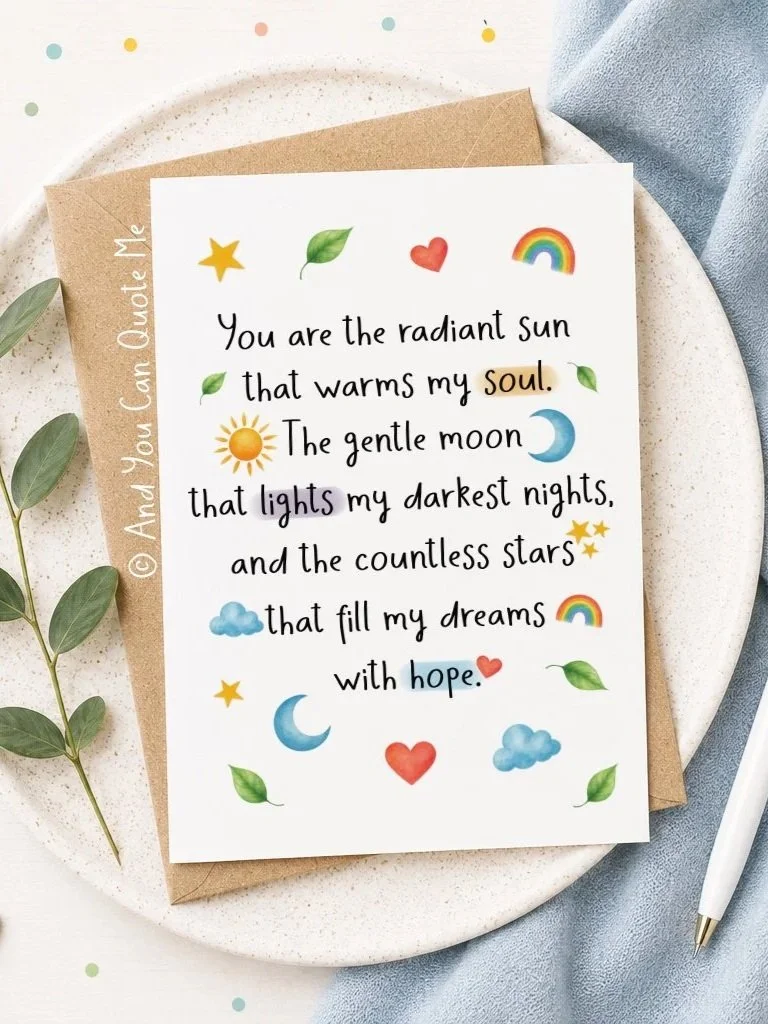 You are the radiant sun
that warms my soul.
The gentle moon
that lights my darkest nights,
and the countless stars
that fill my dreams
with hope.
© And You Can Quote Me